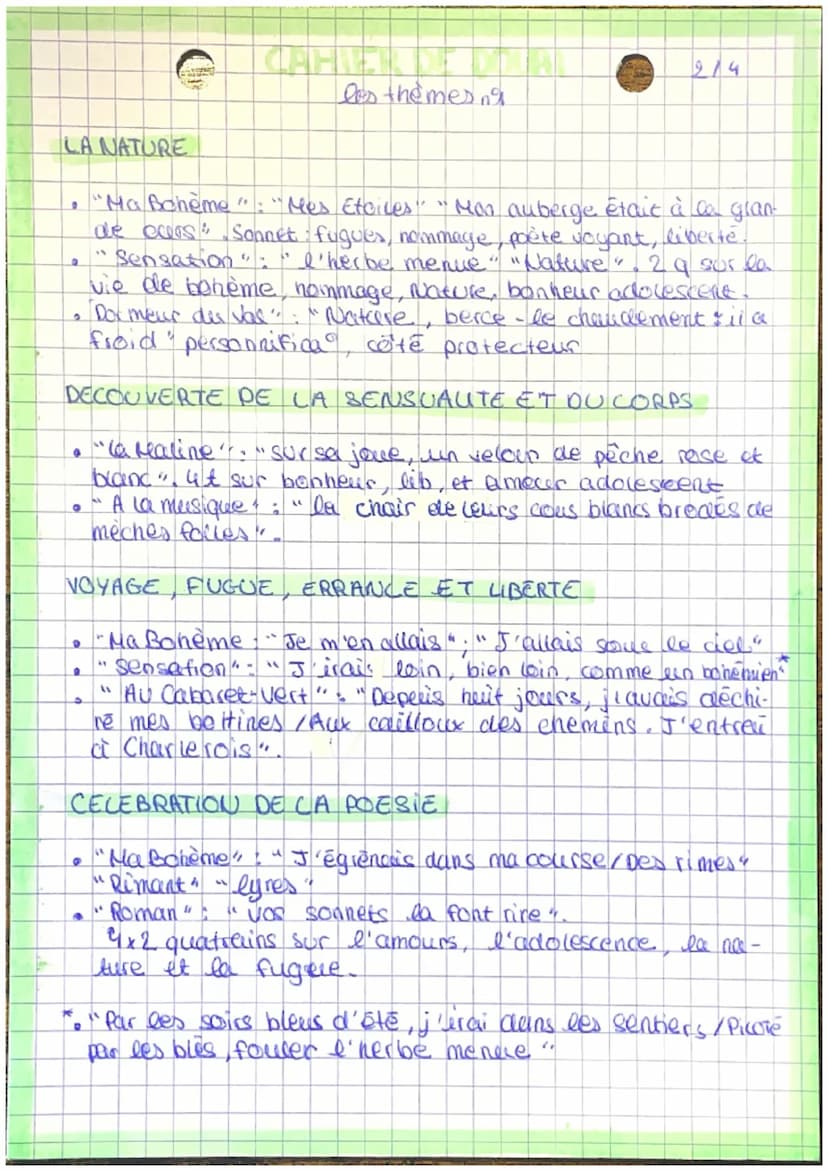 CAHIER DE DOUAI
2/4
les thèmes n°1
LA NATURE
• "Ma Bohème" : "Mes Etoiles" "Mon auberge était à la gran-
de ours". Sonnet : fugues, hommage, poète voyant, liberté.
• "Sensation" : "l'herbe menue" "Nature". 2 q sur la
vie de bohème, hommage, Nature, bonheur adolescent.
• Dormeur du Val" : "Nature, berce-le chaudement : il a
froid" personnifica°, côté protecteur
DECOUVERTE DE LA SENSUALITE ET DU CORPS
• "La Maline" : "sur sa joue, un velour de pêche rose et
blanc". 4t sur bonheur, lib, et amour adolescent
• "A la musique" : "la chair de leurs cous blancs brodés de
mèches folles".
VOYAGE, FUGUE, ERRANCE ET LIBERTE
• "Ma Bohème : "Je m'en allais" ; "J'allais sous le ciel"
• "Sensation" : "J'irais loin, bien loin, comme un bohémien"*
• "Au Cabaret-Vert" : "Depuis huit jours, j'avais déchi-
ré mes bottines / Aux cailloux des chemins. J'entrai
à Charlerois".
CELEBRATION DE LA POESIE
• "Ma Bohème" : "J'égrénais dans ma course / Des rimes"
"Rimant" "lyres"
• "Roman" : "Vos sonnets la font rire".
4x2 quatrains sur l'amours, l'adolescence, la na-
ture et la fugue.
*• "Par les soirs bleus d'été, j'irai dans les sentiers / Picoté
par les blés, fouler l'herbe menue"